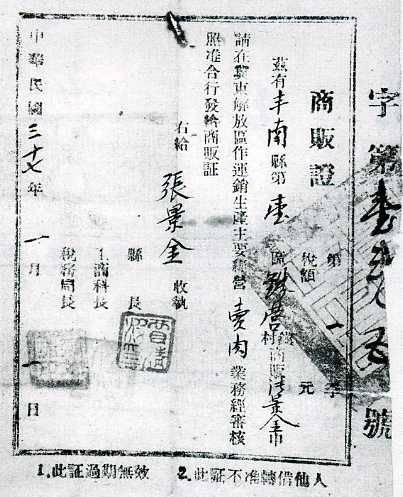 字第壹 号號
商販證
第一季
稅額 元
茲有丰南縣第壹區 營村商販張景金
請在冀東解放區作運銷生產主要經營賣肉業務經審核
照准合行發給商販証
右給
張景金 收執
縣長
工商科長
稅務局長
中華民國三十七年一月一日
1.此証過期無效 2.此証不准轉借他人